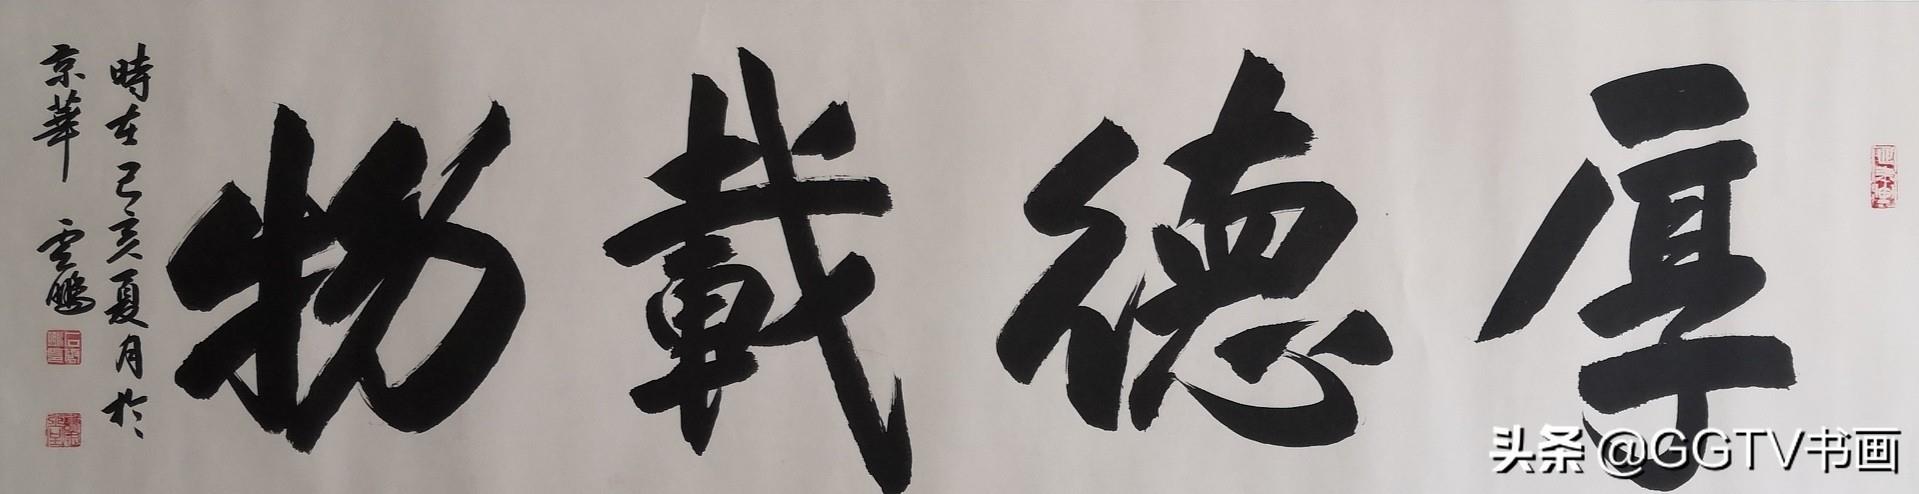 厚德載物
時在己亥夏月於
京華 雲鵬
头条 @GGTV书画